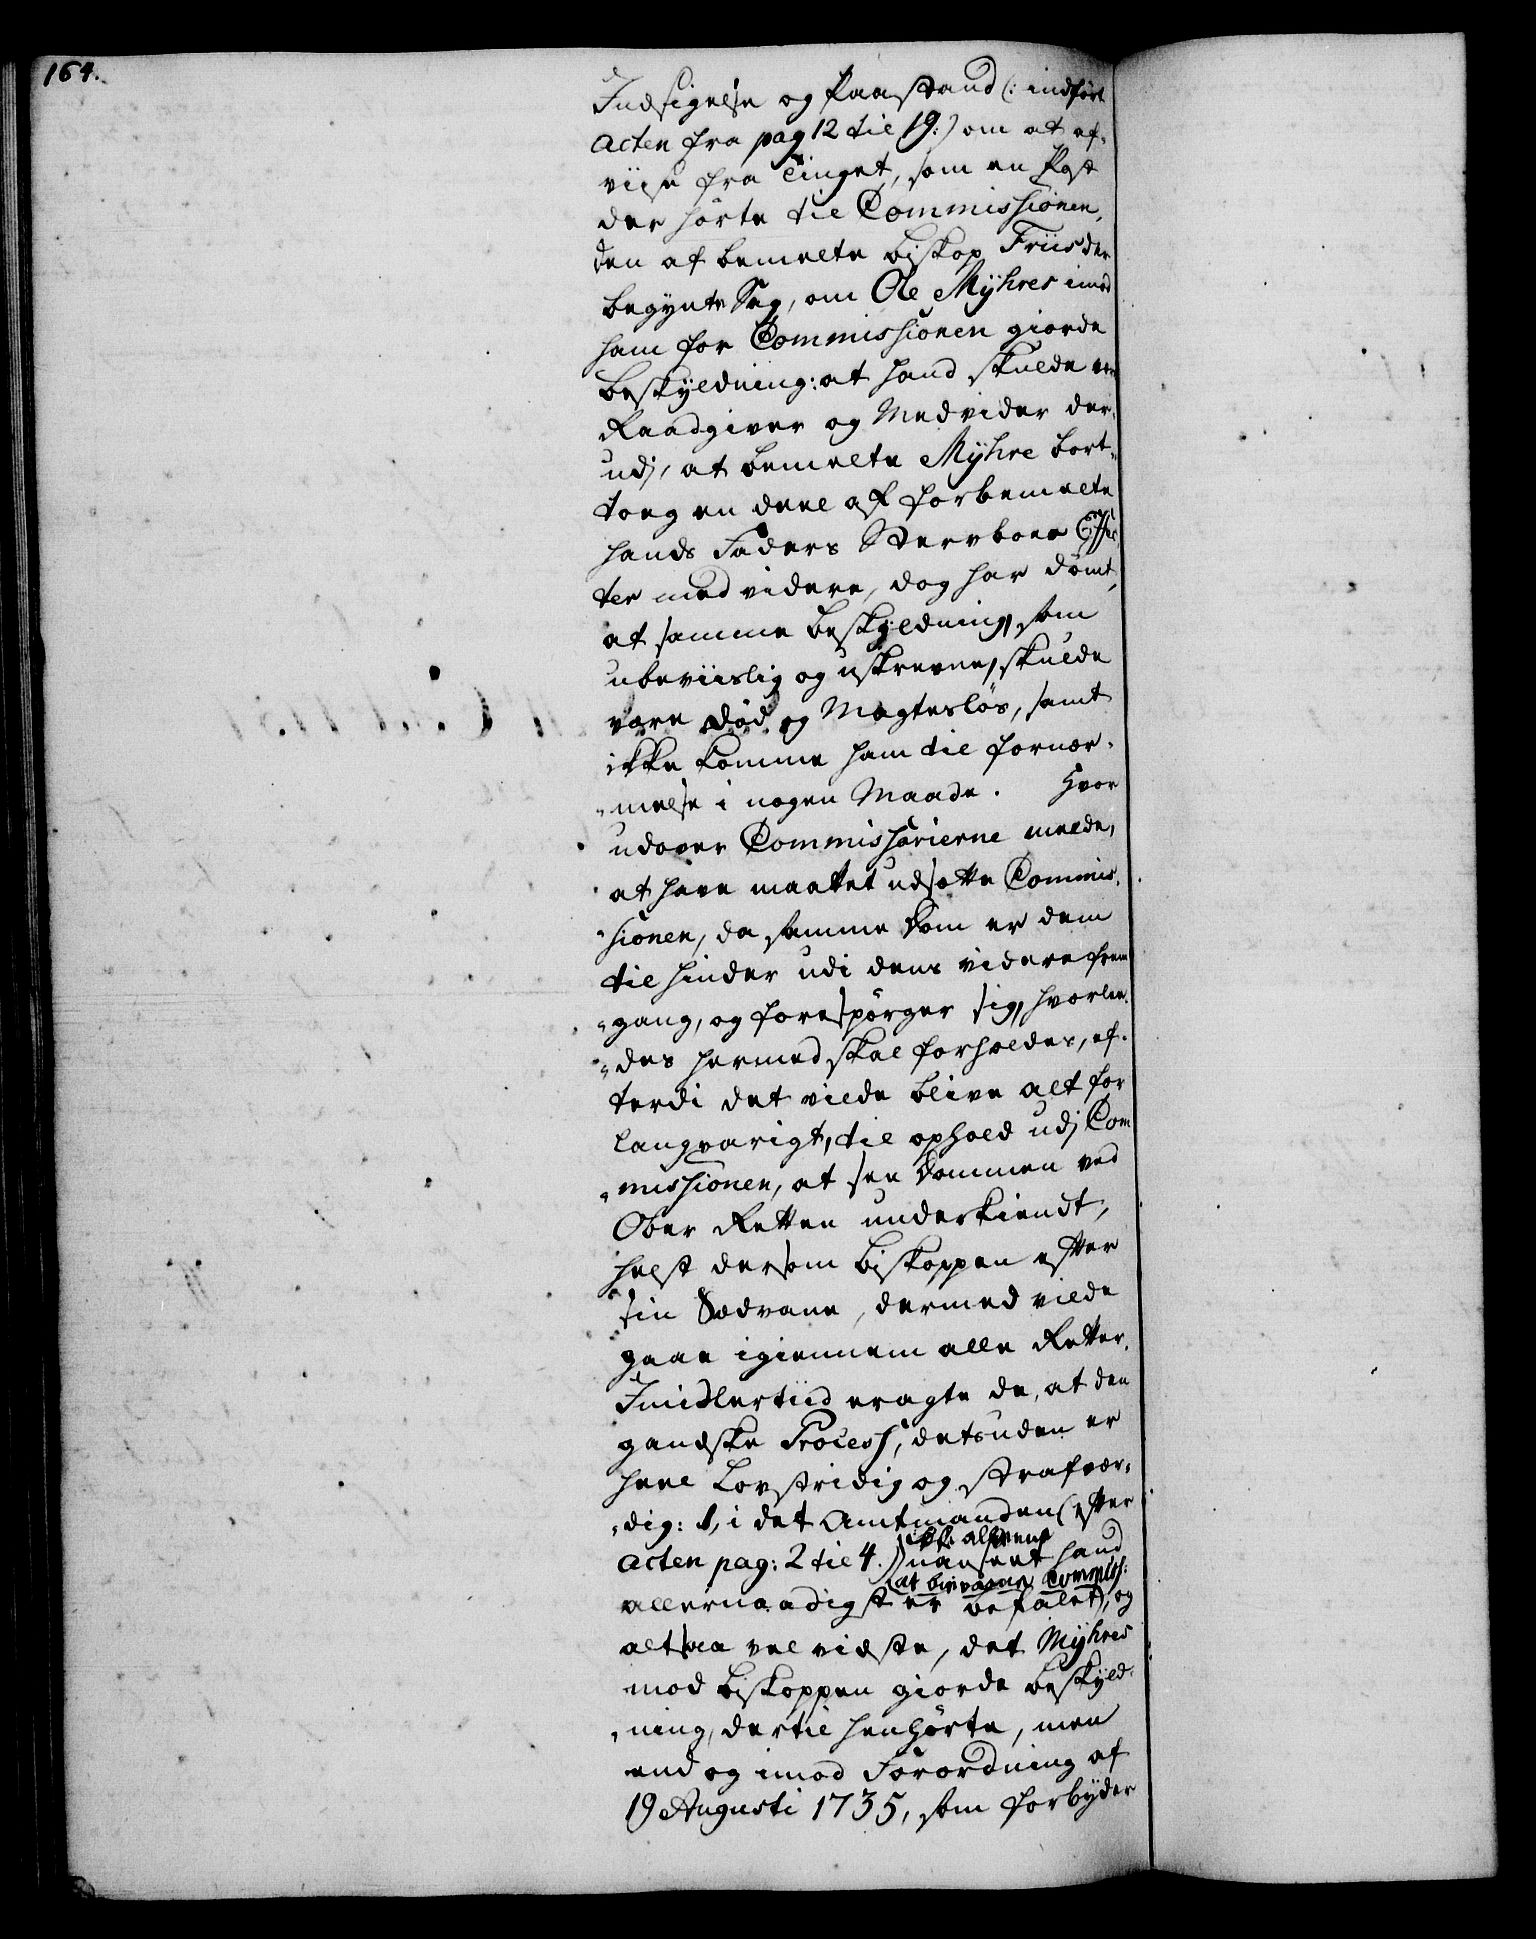 164.
Indsigelse og Paastand (: indført
Acten fra pag 12 til 19:) om at af-
viise fra Tinget, som en Post
der hørte til Commissionen,
den af bemelte Biskop Friis der
begynte Sag, om Ole Myhres imod
ham for Commissionen giorde
Beskyldning: at hand skulde være
Raadgiver og Medvider der-
udj, at bemelte Myhre bort-
toeg en deel af forbemelte
hands Faders Sterboes Effec-
ter med videre, dog har dømt,
at samme Beskyldning, som
ubeviislig og uskreven, skulde
være død og Magtesløs, samt
ikke komme ham til fornær-
melse i nogen Maade. Hvor
udover Commissarierne melde,
at have maattet udsætte Commis-
sionen, da samme Dom er dem
til hinder udi dens videre frem
gang, og forespørger sig, hvorle-
des hermed skal forholdes, ef-
terdi det vilde blive alt for
langvarigt, til ophold udj Com
missionen, at see Dommen ved
Ober Retten underkiendt,
helst dersom Biskoppen efter
sin Sædvane, dermed vilde
gaae igiennem alle Retter.
Imidlertiid eragte de, at den
gandske Process, desuden er
heel Lovstridig og strafvær-
dig: 1, i det Amtmanden (efter
ikke alleene
Acten pag: 2 til 4.) uanseet hand
(at bivaane Commiss:
allernaadigst er befalet), og
altsaa vel vidste, det Myhres
mod Biskoppen giorde Beskyld-
ning, dertil henhørte, men
end og imod Forordning af
19 Augusti 1735, som forbyder